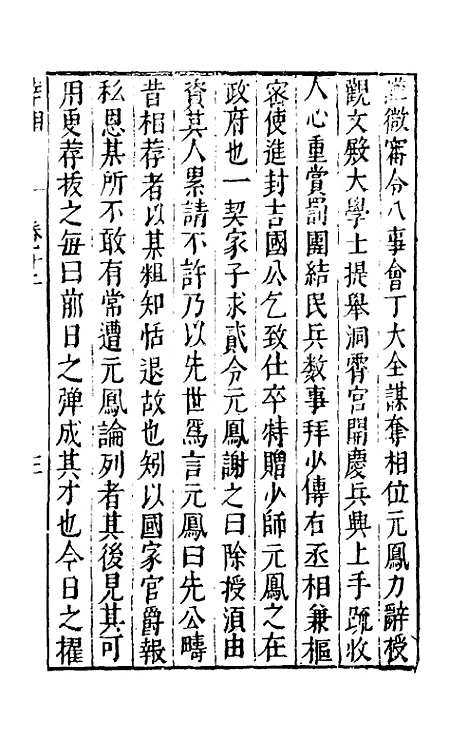 微審令八事會丁大全謀奪相位元鳳力辭授
觀文殿大學士提舉洞霄宮開慶兵興上手䟽收
人心重賞罰團結民兵数事拜少傅右丞相兼樞
宻使進封吉國公乞致仕卒特贈少師元鳳之在
政府也一契家子求貳令元鳳謝之曰除授湏由
資其人累請不許乃以先世爲言元鳳曰先公疇
昔相荐者以某粗知恬退故也矧以國家官爵報
私恩某所不敢有常遭元鳳論列者其後見其可
用更荐拔之每曰前日之弹成其才也今日之擢
卷十二
三